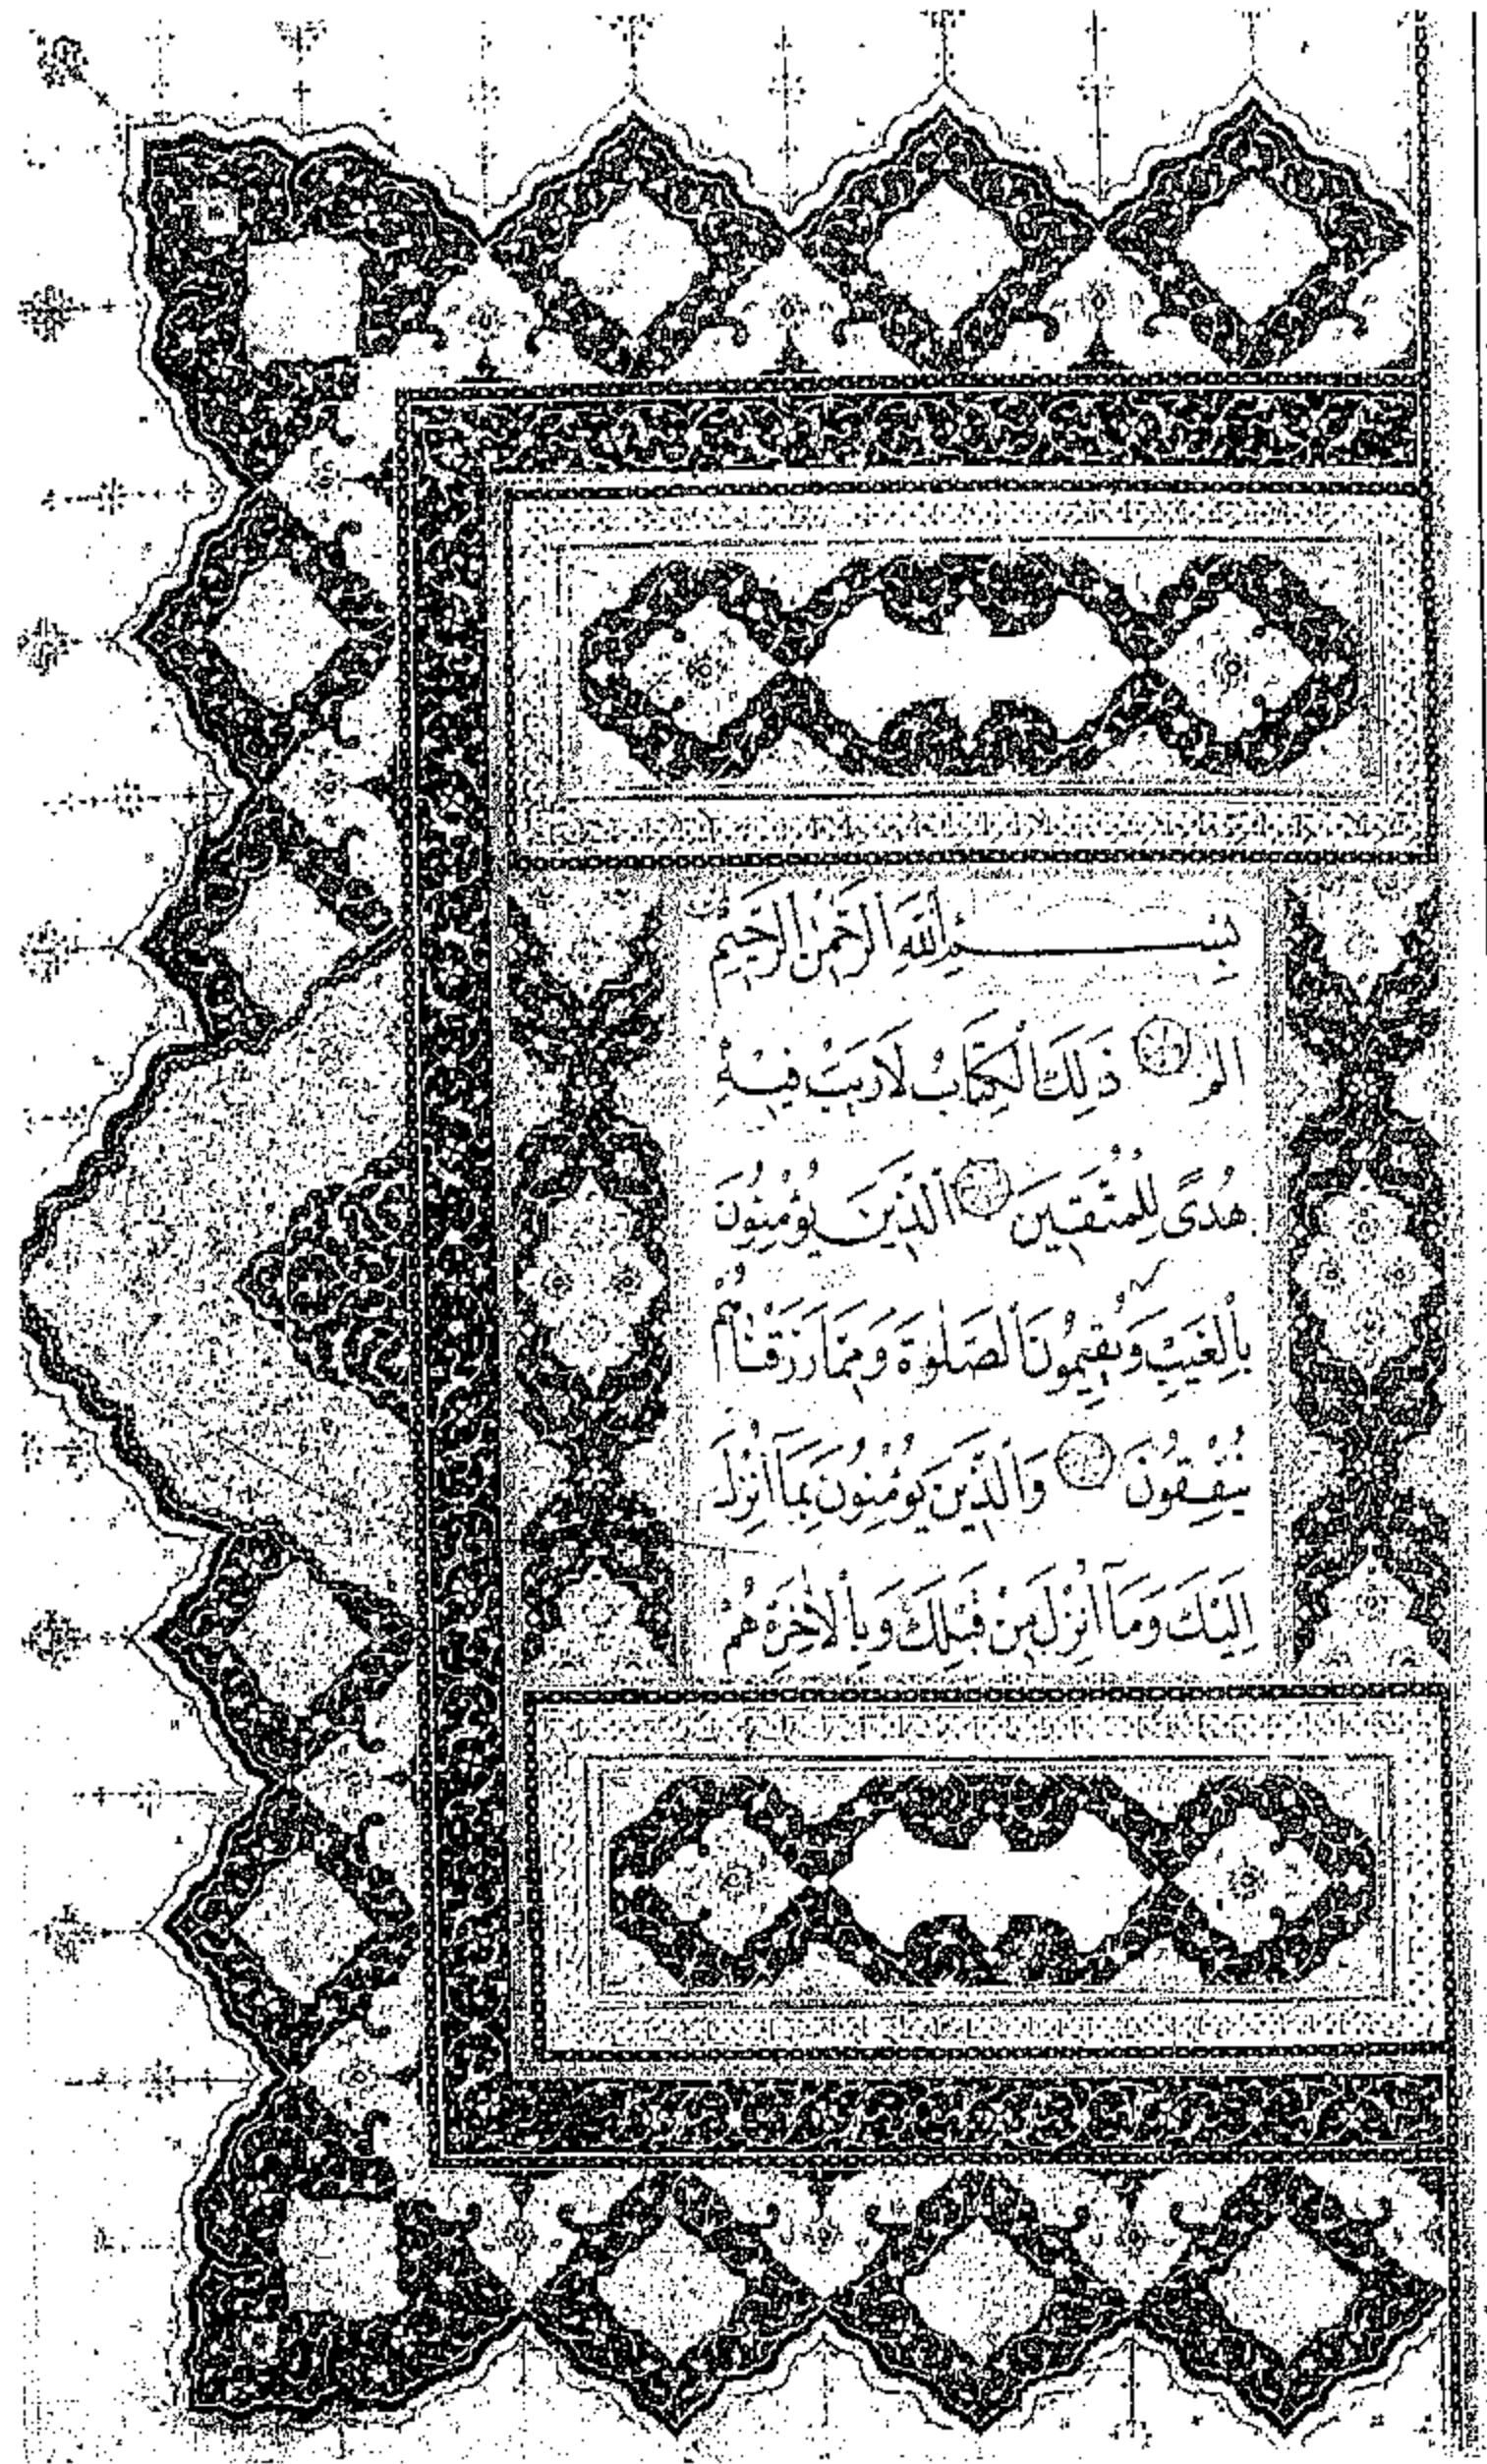 بِسْمِ اللَّهِ الرَّحْمٰنِ الرَّحِيمِ
الم ذَلِكَ الْكِتَابُ لَا رَيْبَ فِيهِ
هُدًى لِلْمُتَّقِينَ الَّذِينَ يُؤْمِنُونَ
بِالْغَيْبِ وَيُقِيمُونَ الصَّلٰوةَ وَمِمَّا رَزَقْنَاهُمْ
يُنْفِقُونَ وَالَّذِينَ يُؤْمِنُونَ بِمَآ اُنْزِلَ
اِلَيْكَ وَمَآ اُنْزِلَ مِنْ قَبْلِكَ وَبِالْاٰخِرَةِ هُمْ